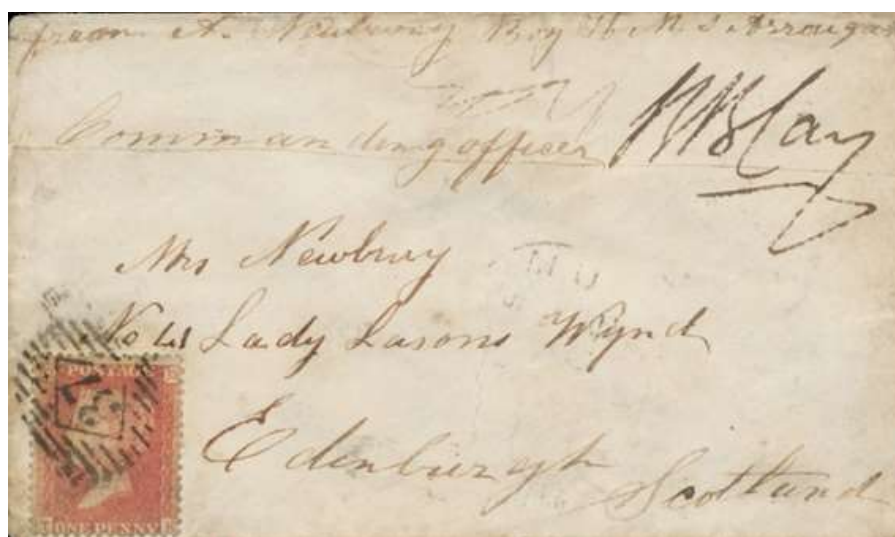 from A. Newbury Boy H. M. S Arrogant
Commanding officer
Mrs Newbury
No Lady Lasons Wynd
Edenburegh
Scotland
POSTAGE
ONE PENNY